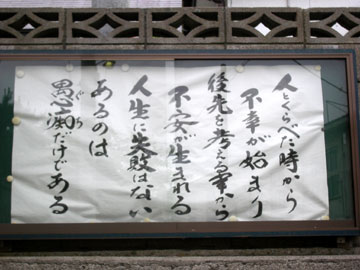 人とくらべた時から
不幸が始まり
後先を考える事から
不安が生まれる
人生に失敗はない
あるのは
愚痴だけである
ぐち